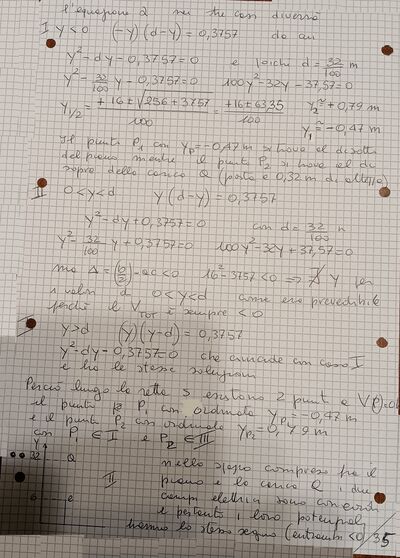 l'equazione 2 nei tre casi diversi
I y<0 (-y)(d-y)=0,3757 da cui
y²-dy-0,3757=0 e poiché d=32/100 m
y²-32/100 y-0,3757=0 100y²-32y-37,57=0
y1/2 = +16±√(256+3757)/100 = +16±63,35/100 y2≅+0,79 m
y1≅-0,47 m
Il punto P1 con yP=-0,47m si trova al disotto
del piano mentre il punto P2 si trova al di
sopra della carica Q (posta a 0,32m di altezza)
II 0<y<d y(d-y)=0,3757
y²-dy+0,3757=0 con d=32/100 m
y²-32/100 y+0,3757=0 100y²-32y+37,57=0
ma Δ=(b/2)²-ac<0 16²-3757<0 ⇒ ∄ y per
i valori d 0<y<d come era prevedibile
perché il VTOT è sempre <0
III y>d (y)(y-d)=0,3757
y²-dy-0,3757=0 che coincide con caso I
e ho le stesse soluzioni
Perciò lungo la retta s esistono 2 punti a V(P)=0
il punto P1 con ordinata yP1=-0,47m
e il punto P2 con ordinata yP2=0,79m
con P1∈I e P2∈III
y
32 Q nello spazio compreso fra il
II piano e la carica Q i due
0 campi elettrici sono concordi
e pertanto i loro potenziali
hanno lo stesso segno (entrambi <0)
35